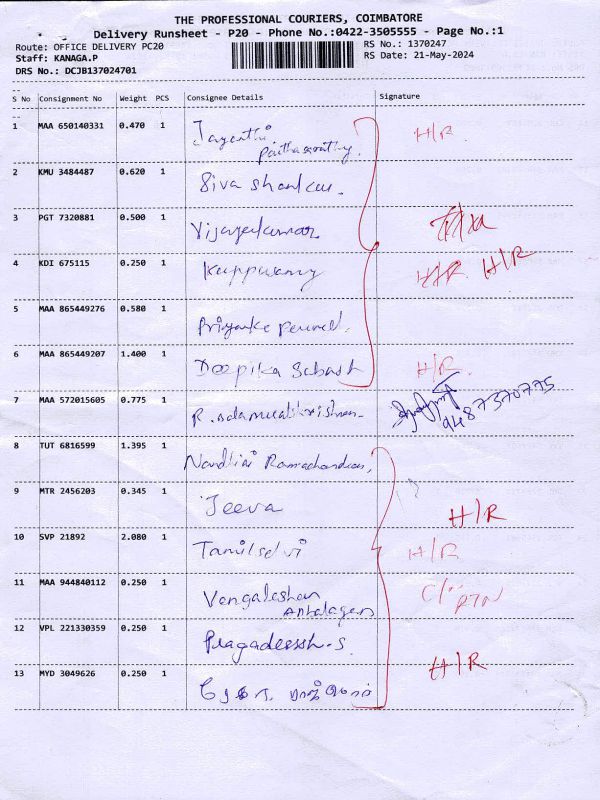 THE PROFESSIONAL COURIERS, COIMBATORE
Delivery Runsheet - P20 - Phone No.:0422-3505555 - Page No.:1
Route: OFFICE DELIVERY PC20
RS No.: 1370247
Staff: KANAGA.P
RS Date: 21-May-2024
DRS No.: DCJB137024701
S No Consignment No Weight PCS Consignee Details Signature
1 MAA 650140331 0.470 1 Jayanthi H/R
Parthasarathy
2 KMU 3484487 0.620 1 Siva Shankar.
3 PGT 7320881 0.500 1 Vijayakumar
4 KDI 675115 0.250 1 Kuppusamy H/R H/R
5 MAA 865449276 0.580 1 Priyanka
6 MAA 865449207 1.400 1 Deepika Subash H/R
7 MAA 572015605 0.775 1 9487370775
8 TUT 6816599 1.395 1 Nandhini Ramachandran,
9 MTR 2456203 0.345 1 Jeeva H/R
10 SVP 21892 2.080 1 Tamilselvi H/R
11 MAA 944840112 0.250 1 RTN
12 VPL 221330359 0.250 1 Pragadeessh.S
13 MYD 3049626 0.250 1 H/R